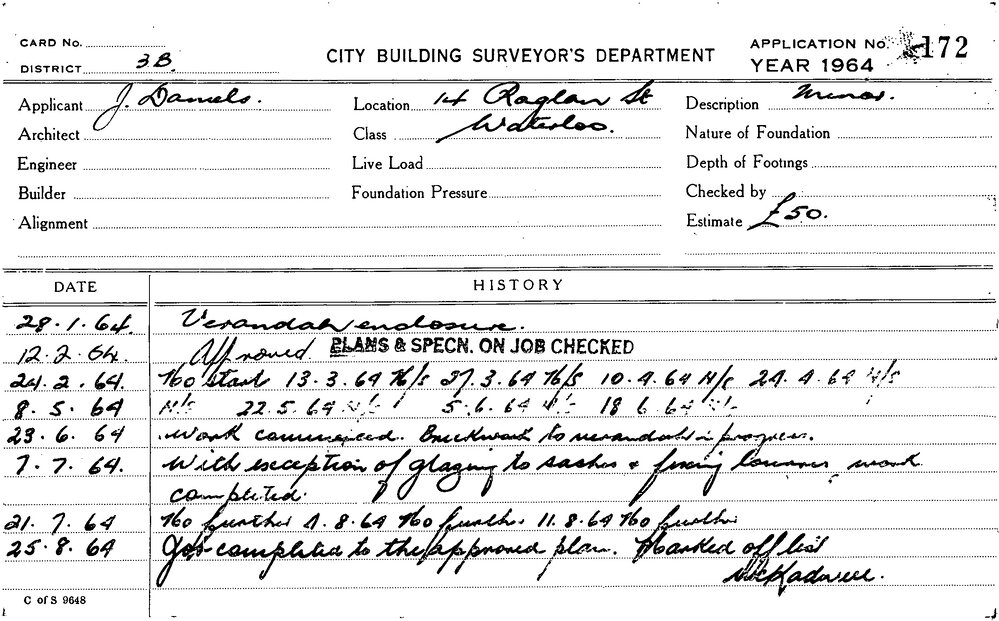 CARD No.
DISTRICT 3B.
CITY BUILDING SURVEYOR'S DEPARTMENT
APPLICATION No. 172
YEAR 1964
Applicant J. Daniels.
Location 14 Raglan St
Waterloo.
Description Minor.
Architect
Class
Nature of Foundation
Engineer
Live Load
Depth of Footings
Builder
Foundation Pressure
Checked by
Alignment
Estimate £50.
DATE HISTORY
28.1.64. Verandah enclosure.
12.2.64. Approved. PLANS & SPECN. ON JOB CHECKED
24.2.64. No start 13.3.64 N/s 27.3.64 N/s 10.4.64 N/s 24.4.64 N/s
8.5.64 N/s 22.5.64 N/s 5.6.64 N/s 18.6.64 N/s
23.6.64 Work commenced. Brickwork to verandah in progress.
7.7.64. With exception of glazing to sashes & fixing louvres work
completed.
21.7.64 No further 4.8.64 No further 11.8.64 No further
25.8.64 Job completed to the approved plan. Marked off list
C of S 9648